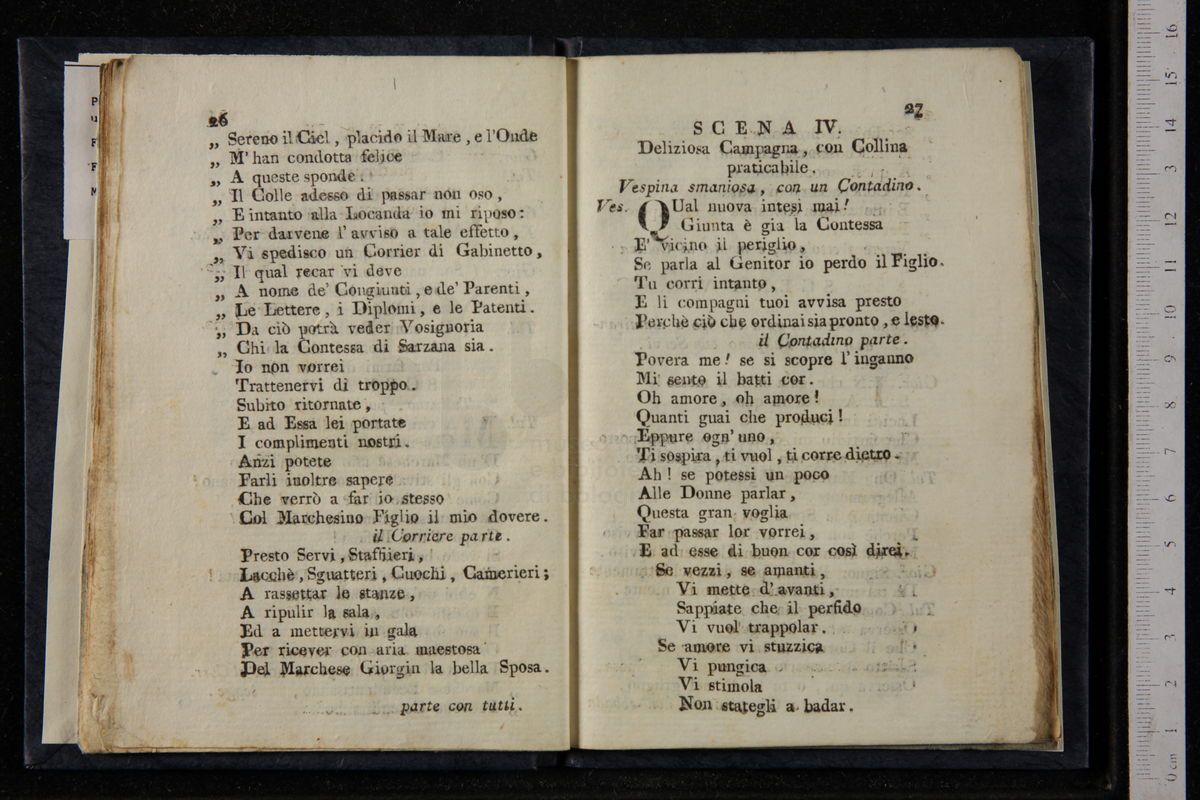 26
„ Sereno il Ciel, placido il Mare, e l'Onde
„ M'han condotta felice
„ A queste sponde.
„ Il Colle adesso di passar non oso,
„ E intanto alla Locanda io mi riposo:
„ Per darvene l'avviso a tale effetto,
„ Vi spedisco un Corrier di Gabinetto,
„ Il qual recar vi deve
„ A nome de' Congiunti, e de' Parenti,
„ Le Lettere, i Diplomi, e le Patenti.
„ Da ciò potrà veder Vosignoria
„ Chi la Contessa di Sarzana sia.
Io non vorrei
Trattenervi di troppo.
Subito ritornate,
E ad Essa lei portate
I complimenti nostri.
Anzi potete
Farli inoltre sapere
Che verrò a far io stesso
Col Marchesino Figlio il mio dovere.
il Corriere parte.
Presto Servi, Staffiieri,
Lacchè, Sguatteri, Cuochi, Camerieri;
A rassettar le stanze,
A ripulir la sala,
Ed a mettervi in gala
Per ricever con aria maestosa
Del Marchese Giorgin la bella Sposa.
parte con tutti.
27
SCENA IV.
Deliziosa Campagna, con Collina
praticabile.
Vespina smaniosa, con un Contadino.
Ves. QUal nuova intesi mai!
Giunta è gia la Contessa
E' vicino il periglio,
Se parla al Genitor io perdo il Figlio.
Tu corri intanto,
E li compagni tuoi avvisa presto
Perchè ciò che ordinai sia pronto, e lesto.
il Contadino parte.
Povera me! se si scopre l'inganno
Mi sento il batti cor.
Oh amore, oh amore!
Quanti guai che produci!
Eppure ogn'uno,
Ti sospira, ti vuol, ti corre dietro.
Ah! se potessi un poco
Alle Donne parlar,
Questa gran voglia
Far passar lor vorrei,
E ad esse di buon cor così direi.
Se vezzi, se amanti,
Vi mette d'avanti,
Sappiate che il perfido
Vi vuol trappolar.
Se amore vi stuzzica
Vi pungica
Vi stimola
Non stategli a badar.
P
F
F
M
0 cm 1 2 3 4 5 6 7 8 9 10 11 12 13 14 15 16